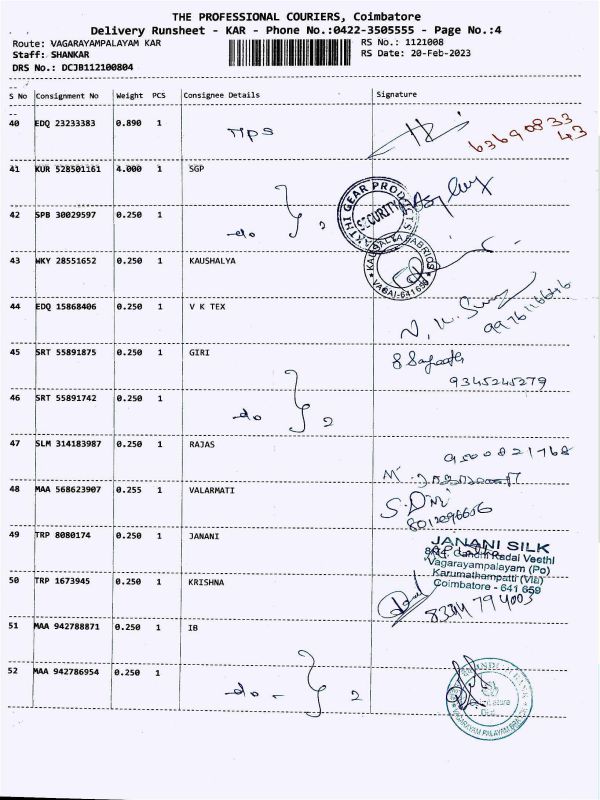 THE PROFESSIONAL COURIERS, Coimbatore
Delivery Runsheet - KAR - Phone No.:0422-3505555 - Page No.:4
Route: VAGARAYAMPALAYAM KAR
RS No.: 1121008
Staff: SHANKAR
RS Date: 20-Feb-2023
DRS No.: DCJB112100804
S No Consignment No Weight PCS Consignee Details Signature
40 EDQ 23233383 0.890 1
63690833
43
41 KUR 528501161 4.000 1 SGP
SAKTHI GEAR PRODUCTS
SECURITY
42 SPB 30029597 0.250 1 do } 2
43 WKY 28551652 0.250 1 KAUSHALYA
KAUSALYA FABRICS
VAGAI-641 659
44 EDQ 15868406 0.250 1 V K TEX
45 SRT 55891875 0.250 1 GIRI
9345245279
46 SRT 55891742 0.250 1 do } 2
47 SLM 314183987 0.250 1 RAJAS
9500821768
48 MAA 568623907 0.255 1 VALARMATI
49 TRP 8080174 0.250 1 JANANI
JANANI SILK
Gandhi Radai Veethi
Vagarayampalayam (Po)
Karumathampatti (Via)
Coimbatore - 641 659
50 TRP 1673945 0.250 1 KRISHNA
8344794003
51 MAA 942788871 0.250 1 IB
52 MAA 942786954 0.250 1 do - } 2
BANK
VAGARAYAM PALAYAM BRANCH